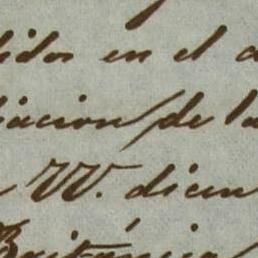 idos en el a
iacion de la
VV. dicen
Británica